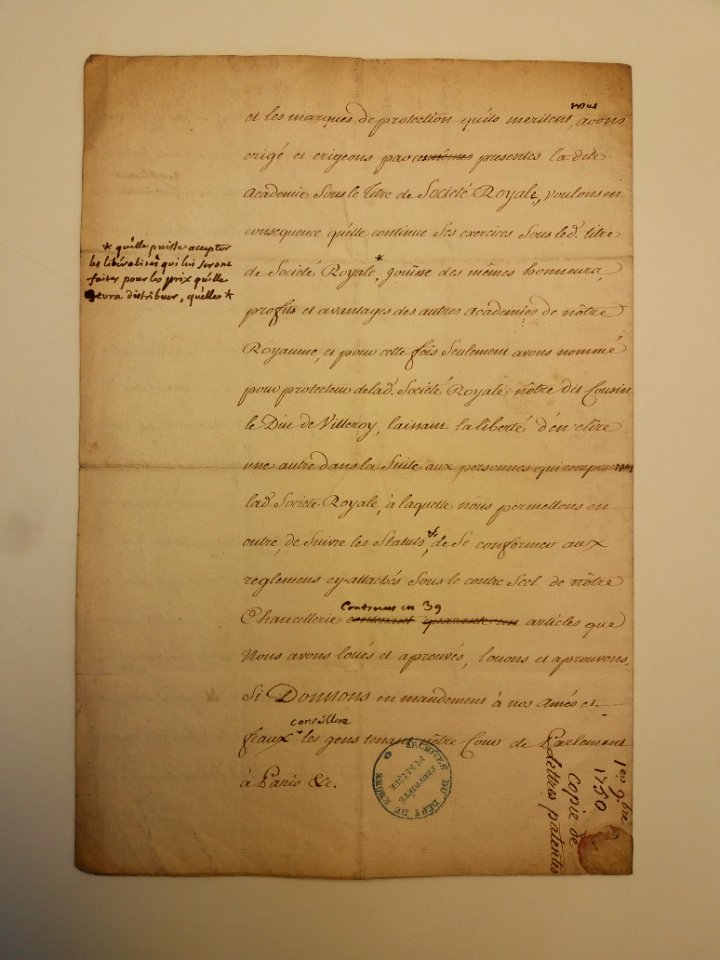 nous
et les marques de protection quils meritent, avons
erigé et erigeons par ces mêmes presentes la dite
academie Sous le titre de Societé Royale, voulons en
consequence qu'elle continue Ses exercices Sous led. titre
de Societé Royale,* jouisse des mêmes honneurs,
profits et avantages des autres academies de nôtre
Royaume, et pour cette fois Seulement avons nommé
pour protecteur de lad. Societé Royale nôtre dit Cousin
le Duc de Villeroy, laissant la liberté d'en elire
une autre dans la Suite aux personnes qui composeront
lad. Societé Royale, à laquelle nous permettons en
outre, de Suivre les Statuts, et de Se conformer aux
reglemens cy-attachés Sous le contre Scel de nôtre
Contenus en 39
Chancellerie contenant quarante articles que
Nous avons loués et aprouvés, louons et aprouvons.
Si Donnons en mandement à nos amés et
conseillers
feaux les gens tenant nôtre Cour de Parlement
à Paris &c.
* qu'elle puisse accepter
les libéralités qui lui seront
faites pour les prix qu'elle
devra distribuer, qu'elle *
ARCHIVES DU DEPT DU RHÔNE
PROPRIÉTÉ
PUBLIQUE
1er 9bre
1750
copie de
lettres patentes